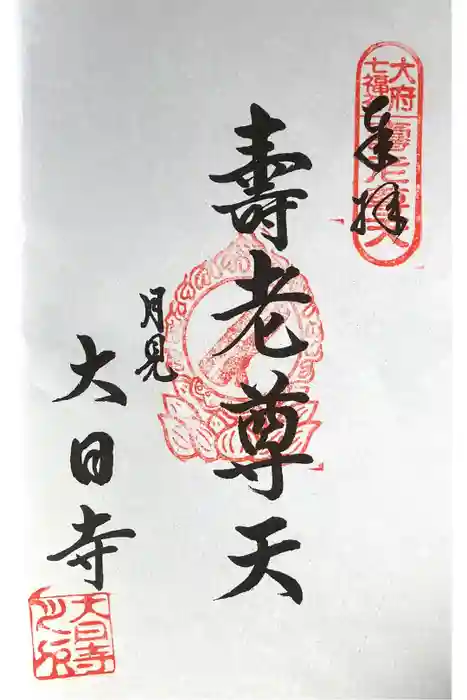 奉拝
大府
七福
老尊天
壽老尊天
月見
大日寺
大日寺